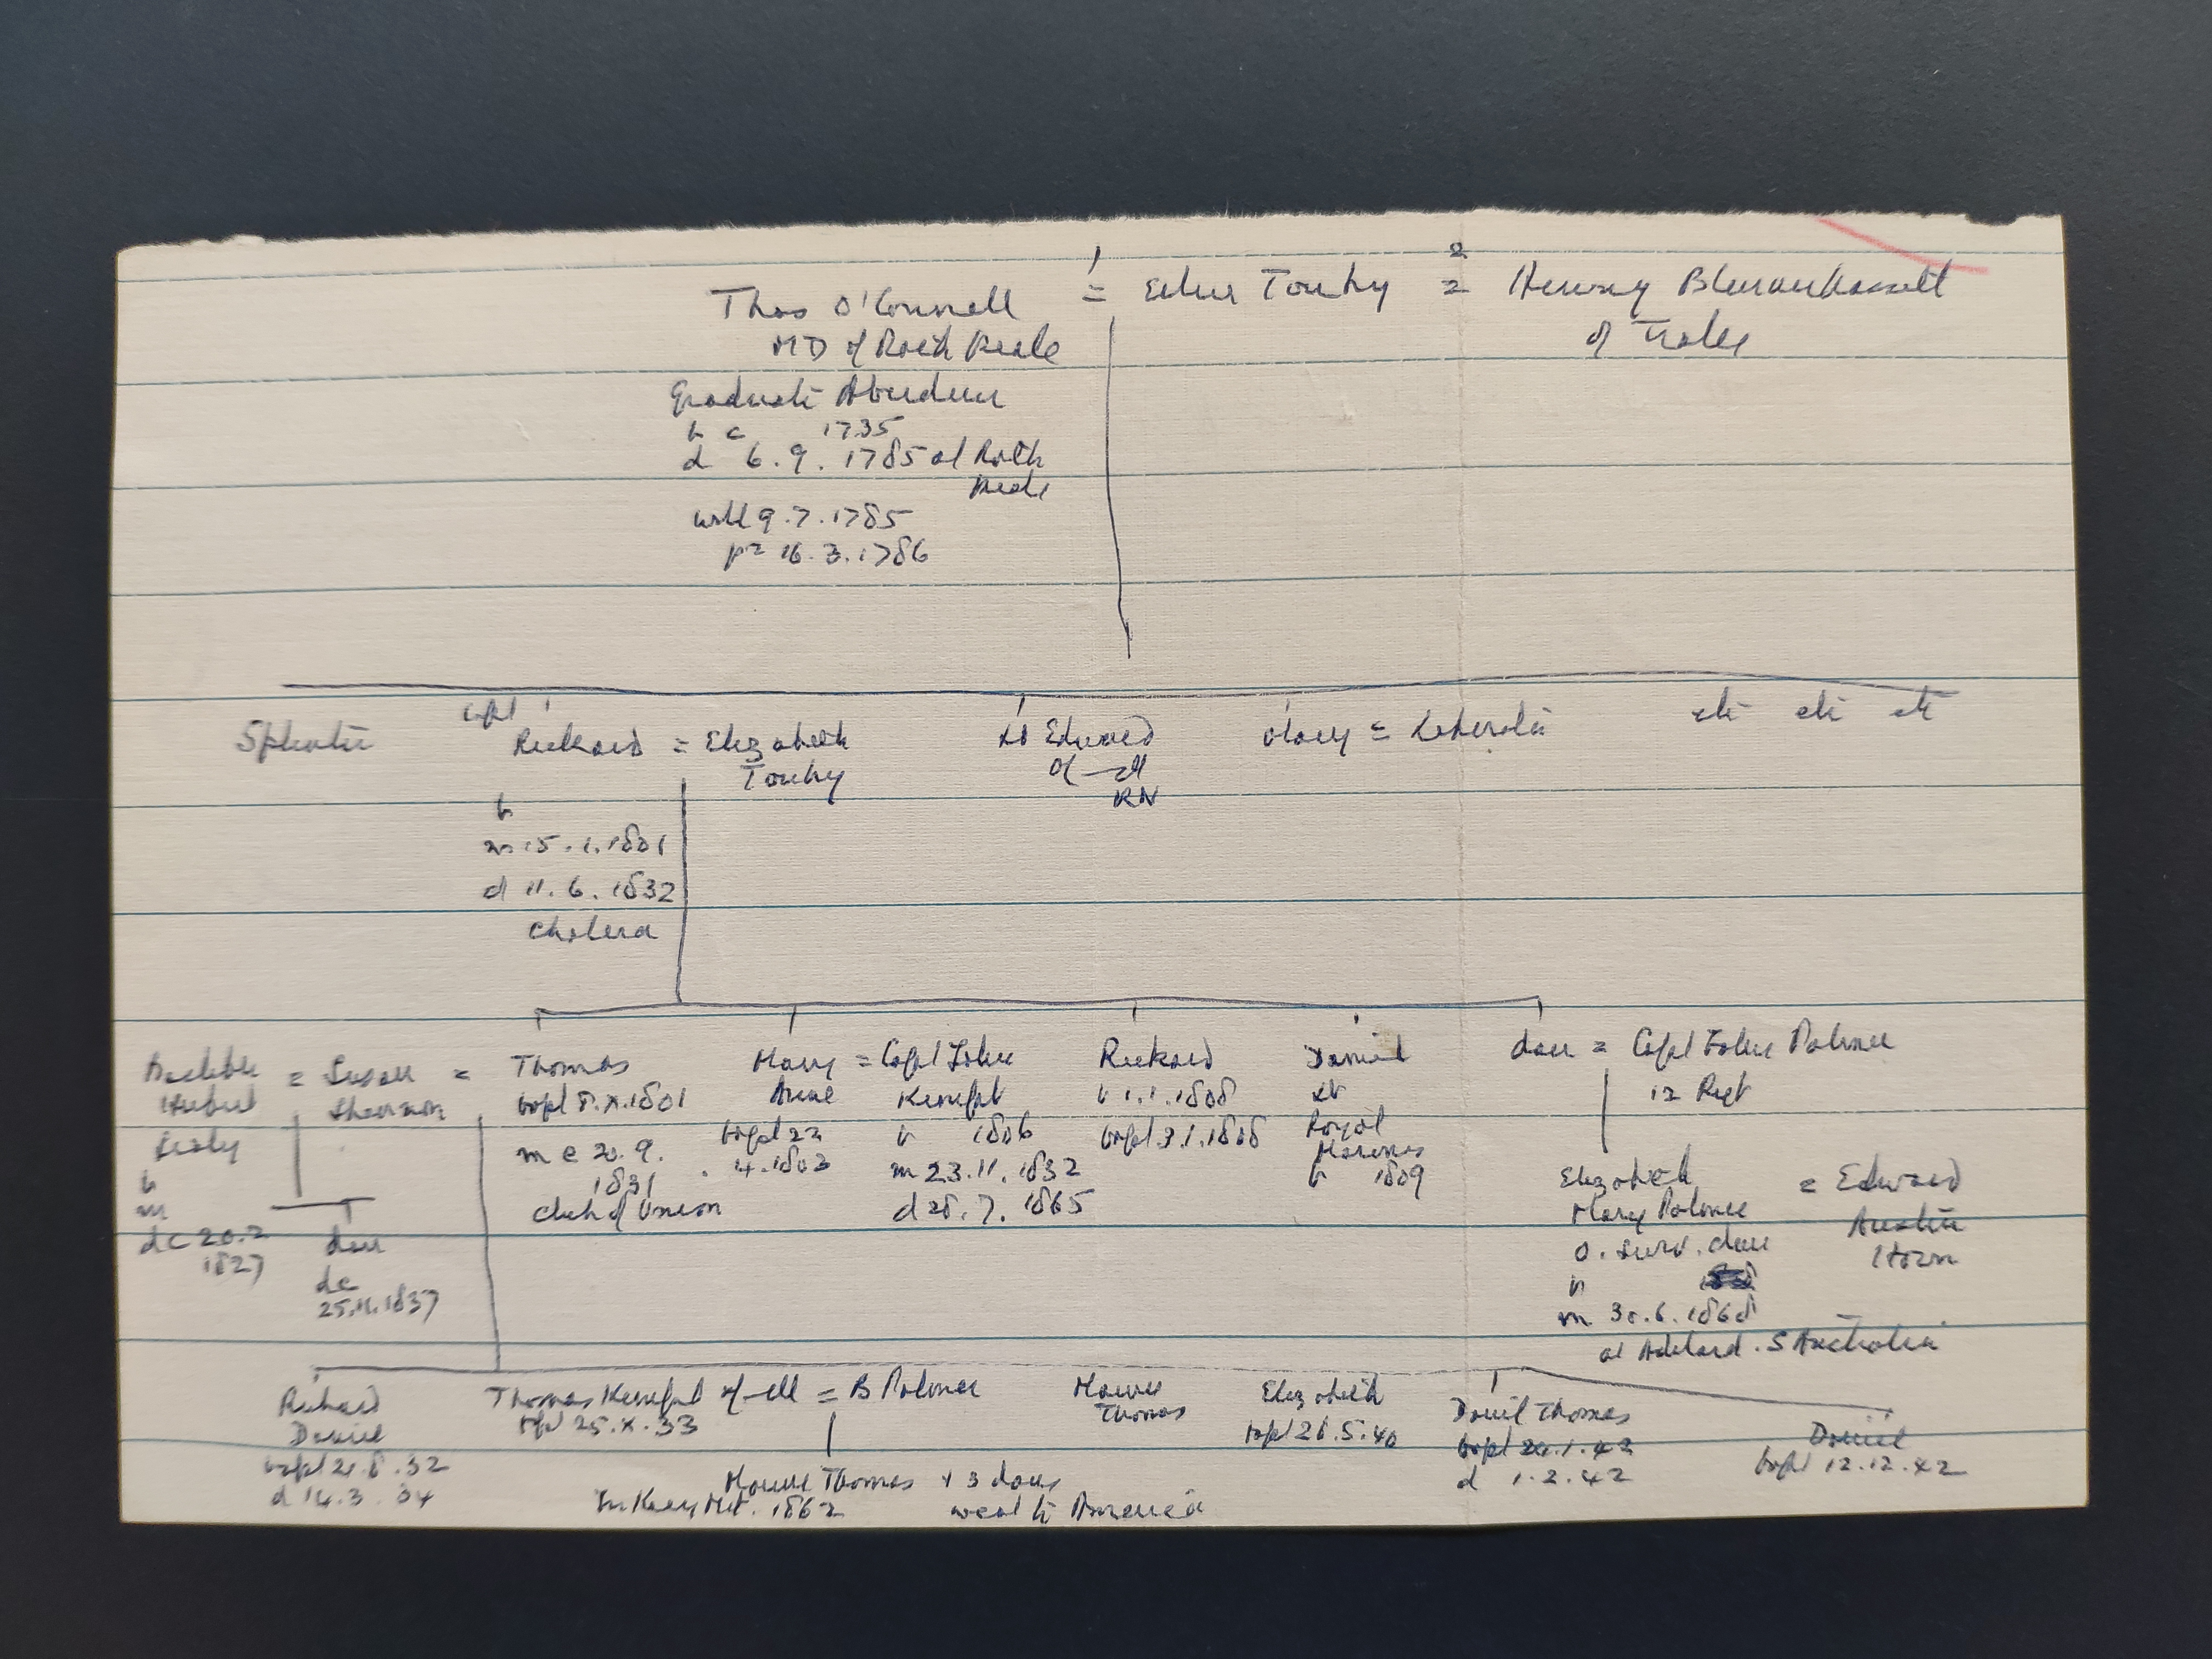 1 2
Thos O'Connell = Ellen Touhy = Henry Blennerhassett
MD of Rath Beale of Tralee
graduate Aberdeen
b c 1735
d 6.9.1785 at Rath
Beale
will 9.7.1785
pr 16.3.1786
Capt
Richard = Elizabeth Lt Edward Mary = etc etc etc
Touhy O'C—ell
RN
b
m 15.1.1801
d 11.6.1832
cholera
= Susan = Thomas Mary = Capt John Richard Daniel dau = Capt John Palmer
bapt 8.x.1801 Anne b 1.1.1808 Lt 12 Regt
m c 20.9. bapt 22 b 1806 bapt 3.1.1808 Royal
1831 4.1803 m 23.11.1832 Marines
d 28.7.1865 b 1809
b
m
dc 20.2
1827
dau
dc
25.11.1837
Elizabeth = Edward
Mary Palmer Austin
o. surv. dau Horn
b
m 30.6.1868
at Adelaid. S Australia
Richard Thomas = B Palmer Maurice Elizabeth Daniel Thomas Daniel
Daniel bapt 25.x.33 Thomas bapt 21.5.40 bapt 20.1.42 bapt 12.12.42
bapt 21.8.32 d 1.2.42
d 14.3.34
Maurice Thomas + 3 daus
in Kerry Mil. 1862 went to America